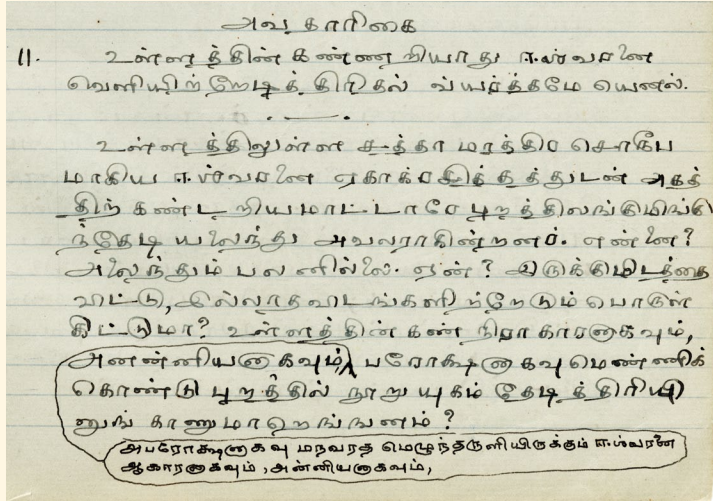 அவதாரிகை
11. உள்ளத்தின் கண்ணறியாது ஈஶ்வரனை
வெளியிற்றேடித் திரிதல் வ்யர்த்தமே யெனல்.
உள்ளத்திலுள்ள சத்தா மாத்திர சொரூப
மாகிய ஈஶ்வரனை ஏகாக்ரசித்தத்துடன் அகத்
திற் கண்டறியமாட்டாரே புறத்திலங்குமிங்கு
ந்தேடி யலைந்து அவலராகின்றனர். என்னை?
அலைந்தும் பலனில்லை. ஏன்? இருக்குமிடத்தை
விட்டு, இல்லாதவிடங்களிற்றேடும் பொருள்
கிட்டுமா? உள்ளத்தின் கண் நிராகாரனாகவும்,
அனன்னியனாகவும், பரோக்ஷனாகவுமெண்ணிக்
கொண்டு புறத்தில் நூறு யுகம் தேடித் திரியி
னுங் காணுமாறெங்ஙனம்?
அபரோக்ஷனாகவு மநவரத மெழுந்தருளியிருக்கும் ஈஶ்வரனை
ஆகாரனாகவும், அன்னியனாகவும்,